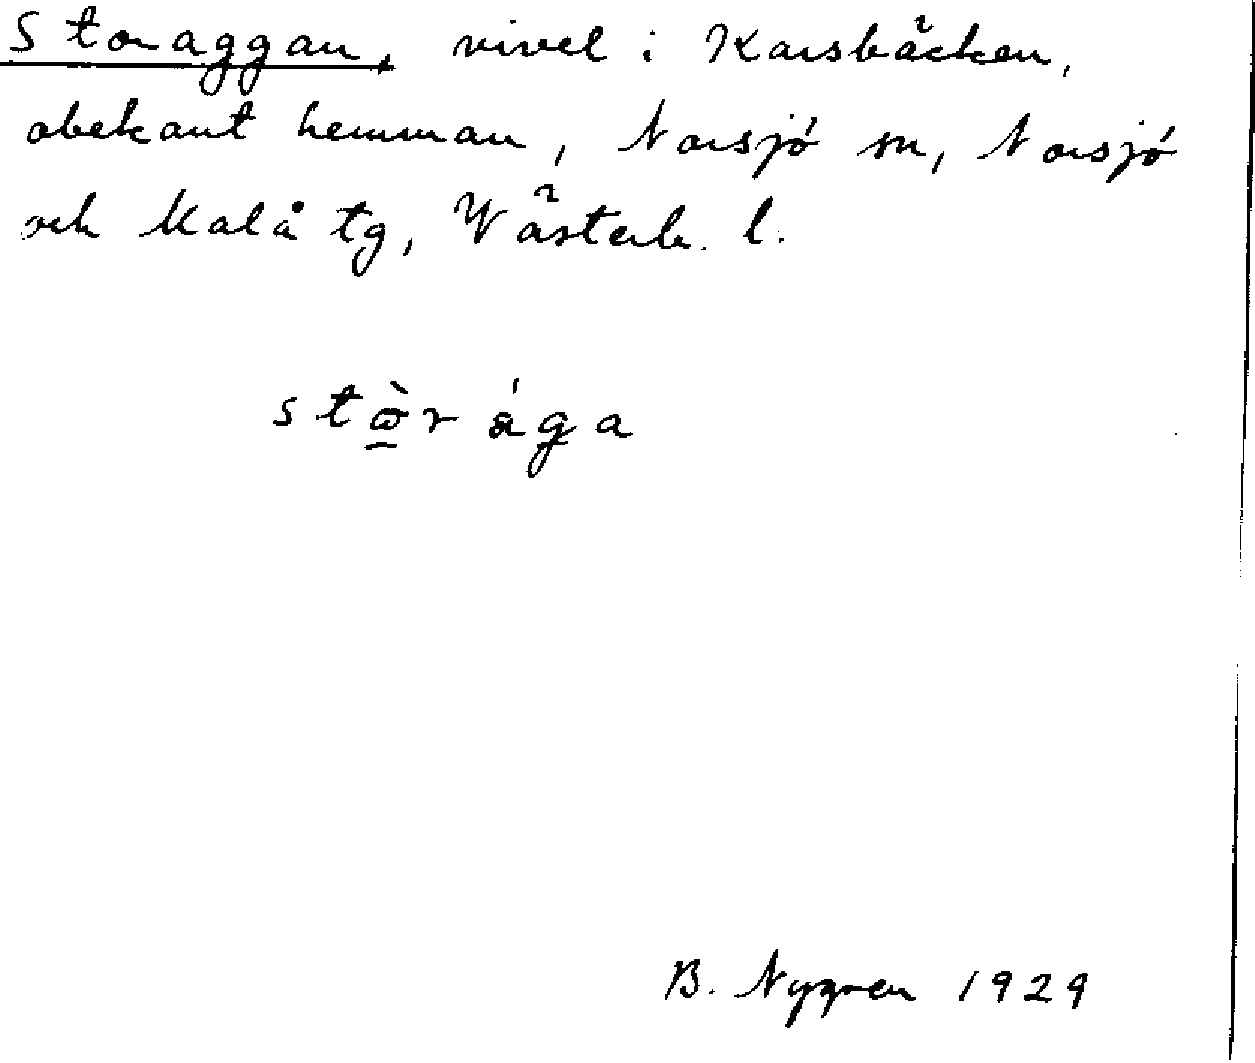 Storaggan, vivel i Karsbäcken,
obekant hemman, Norsjö sn, Norsjö
och Malå tg, Västerb. l.
stὼ̱r ága
B. Nygren 1929